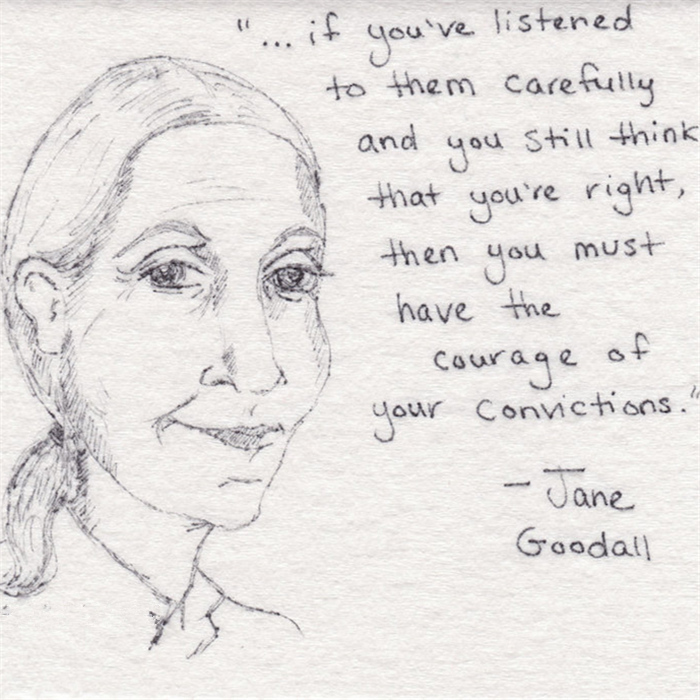 "... if you've listened
to them carefully
and you still think
that you're right,
then you must
have the
courage of
your convictions."
- Jane
Goodall